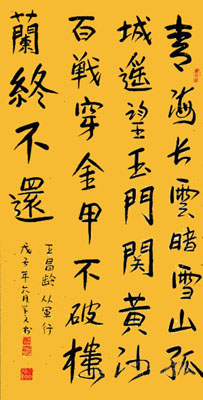 青海长雲暗雪山孤
城遥望玉門関黄沙
百戦穿金甲不破樓
蘭終不還
王昌龄 从军行
戊子年六月书